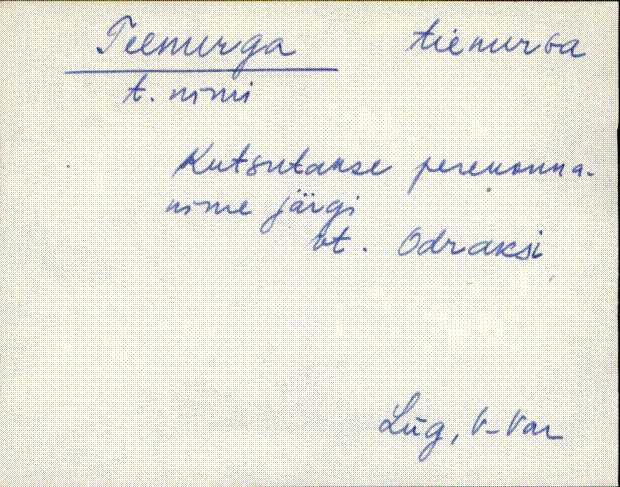 Teenurga tienurGa
t. nimi
Kutsutakse perekonna-
nime järgi
vt. Odraksi
Lüg, V-Var